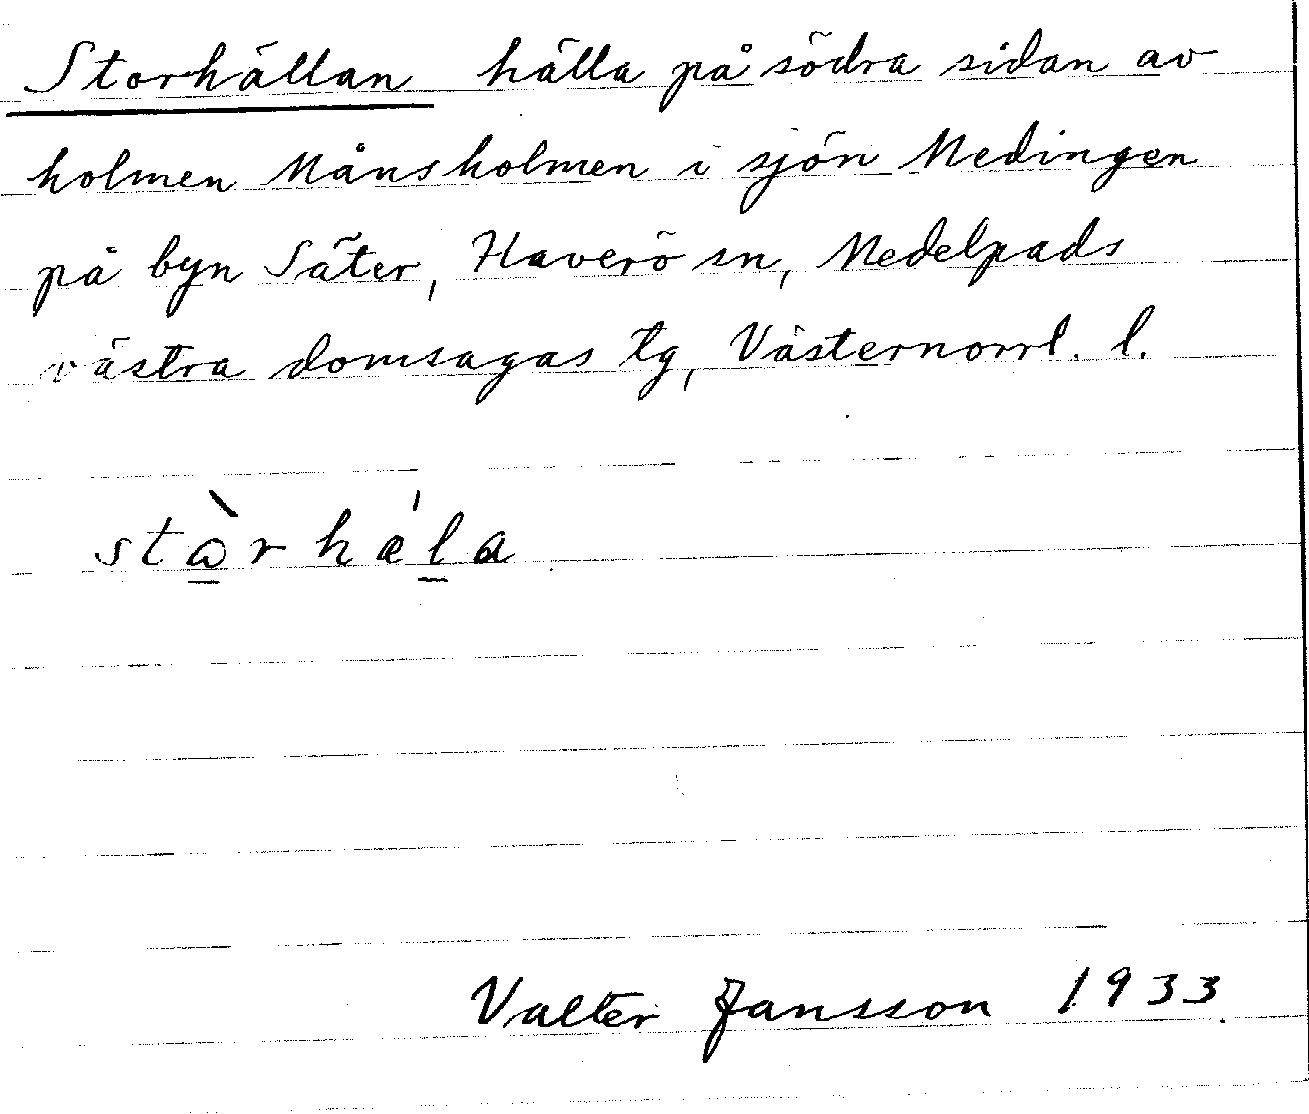 Storhällan hälla på södra sidan av
holmen Månsholmen i sjön Medingen
på byn Säter, Haverö sn, Medelpads
västra domsagas tg, Västernorrl. l.
stɷ̀rhæ̍la
Valter Jansson 1933.